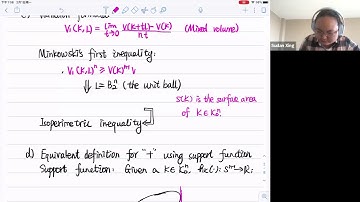 c) Variation formula
V₁(K,L) = lim t→0 V(K+tL)-V(K) / nt (Mixed volume)
Minkowski's first inequality:
V₁(K,L)ⁿ ≥ V(K)ⁿ⁻¹ V
⇓ L=B₂ⁿ (the unit ball)
S(K) is the surface area
of K∈K₀ⁿ.
Isoperimetric inequality
d) Equivalent definition for "+" using support function
Support function: Given a K∈K₀ⁿ, hK(·): Sⁿ⁻¹→R,
Sudan Xing